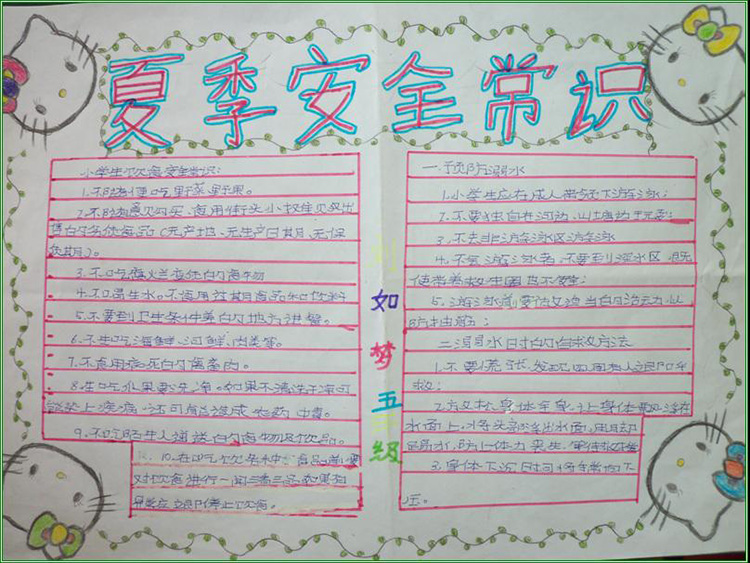 夏季安全常识
小学生饮食安全常识:
1.不随便吃野菜野果。
2.不随意购买、食用街头小摊贩出
售的劣质食品（无产地、无生产日期、无保
质期）。
3.不吃腐烂变质的食物
4.不喝生水。不食用过期食品和饮料
5.不要到卫生条件差的地方进餐。
6.不生吃海鲜、河鲜、肉类等。
7.不食用病死的禽畜肉。
8.生吃瓜果要洗净。如果不清洗干净可
能染上疾病,还可能造成农药中毒。
9.不吃陌生人递送的食物及饮品。
10.在吃饮
对饮食进行一闻二看三品
异常应立即停止饮食。
刘如梦五年级
一.预防溺水
1.小学生应在成人带领下游泳;
2.不要独自在河边、山塘边玩耍;
3.不去非游泳区游泳
4.不会游泳者,不要到深水区,既
使带着救生圈也不安全;
5.游泳前要做适当的活动,以
防抽筋;
二溺水时的自救方法
1.不要慌张,发现四周有人立即呼
救;
2.放松身体全身,让身体飘浮在
水面上,将头部浮出水面,用脚
踢水,防止体力丧失,等待救援
3.身体下沉时,将手掌向下
压。